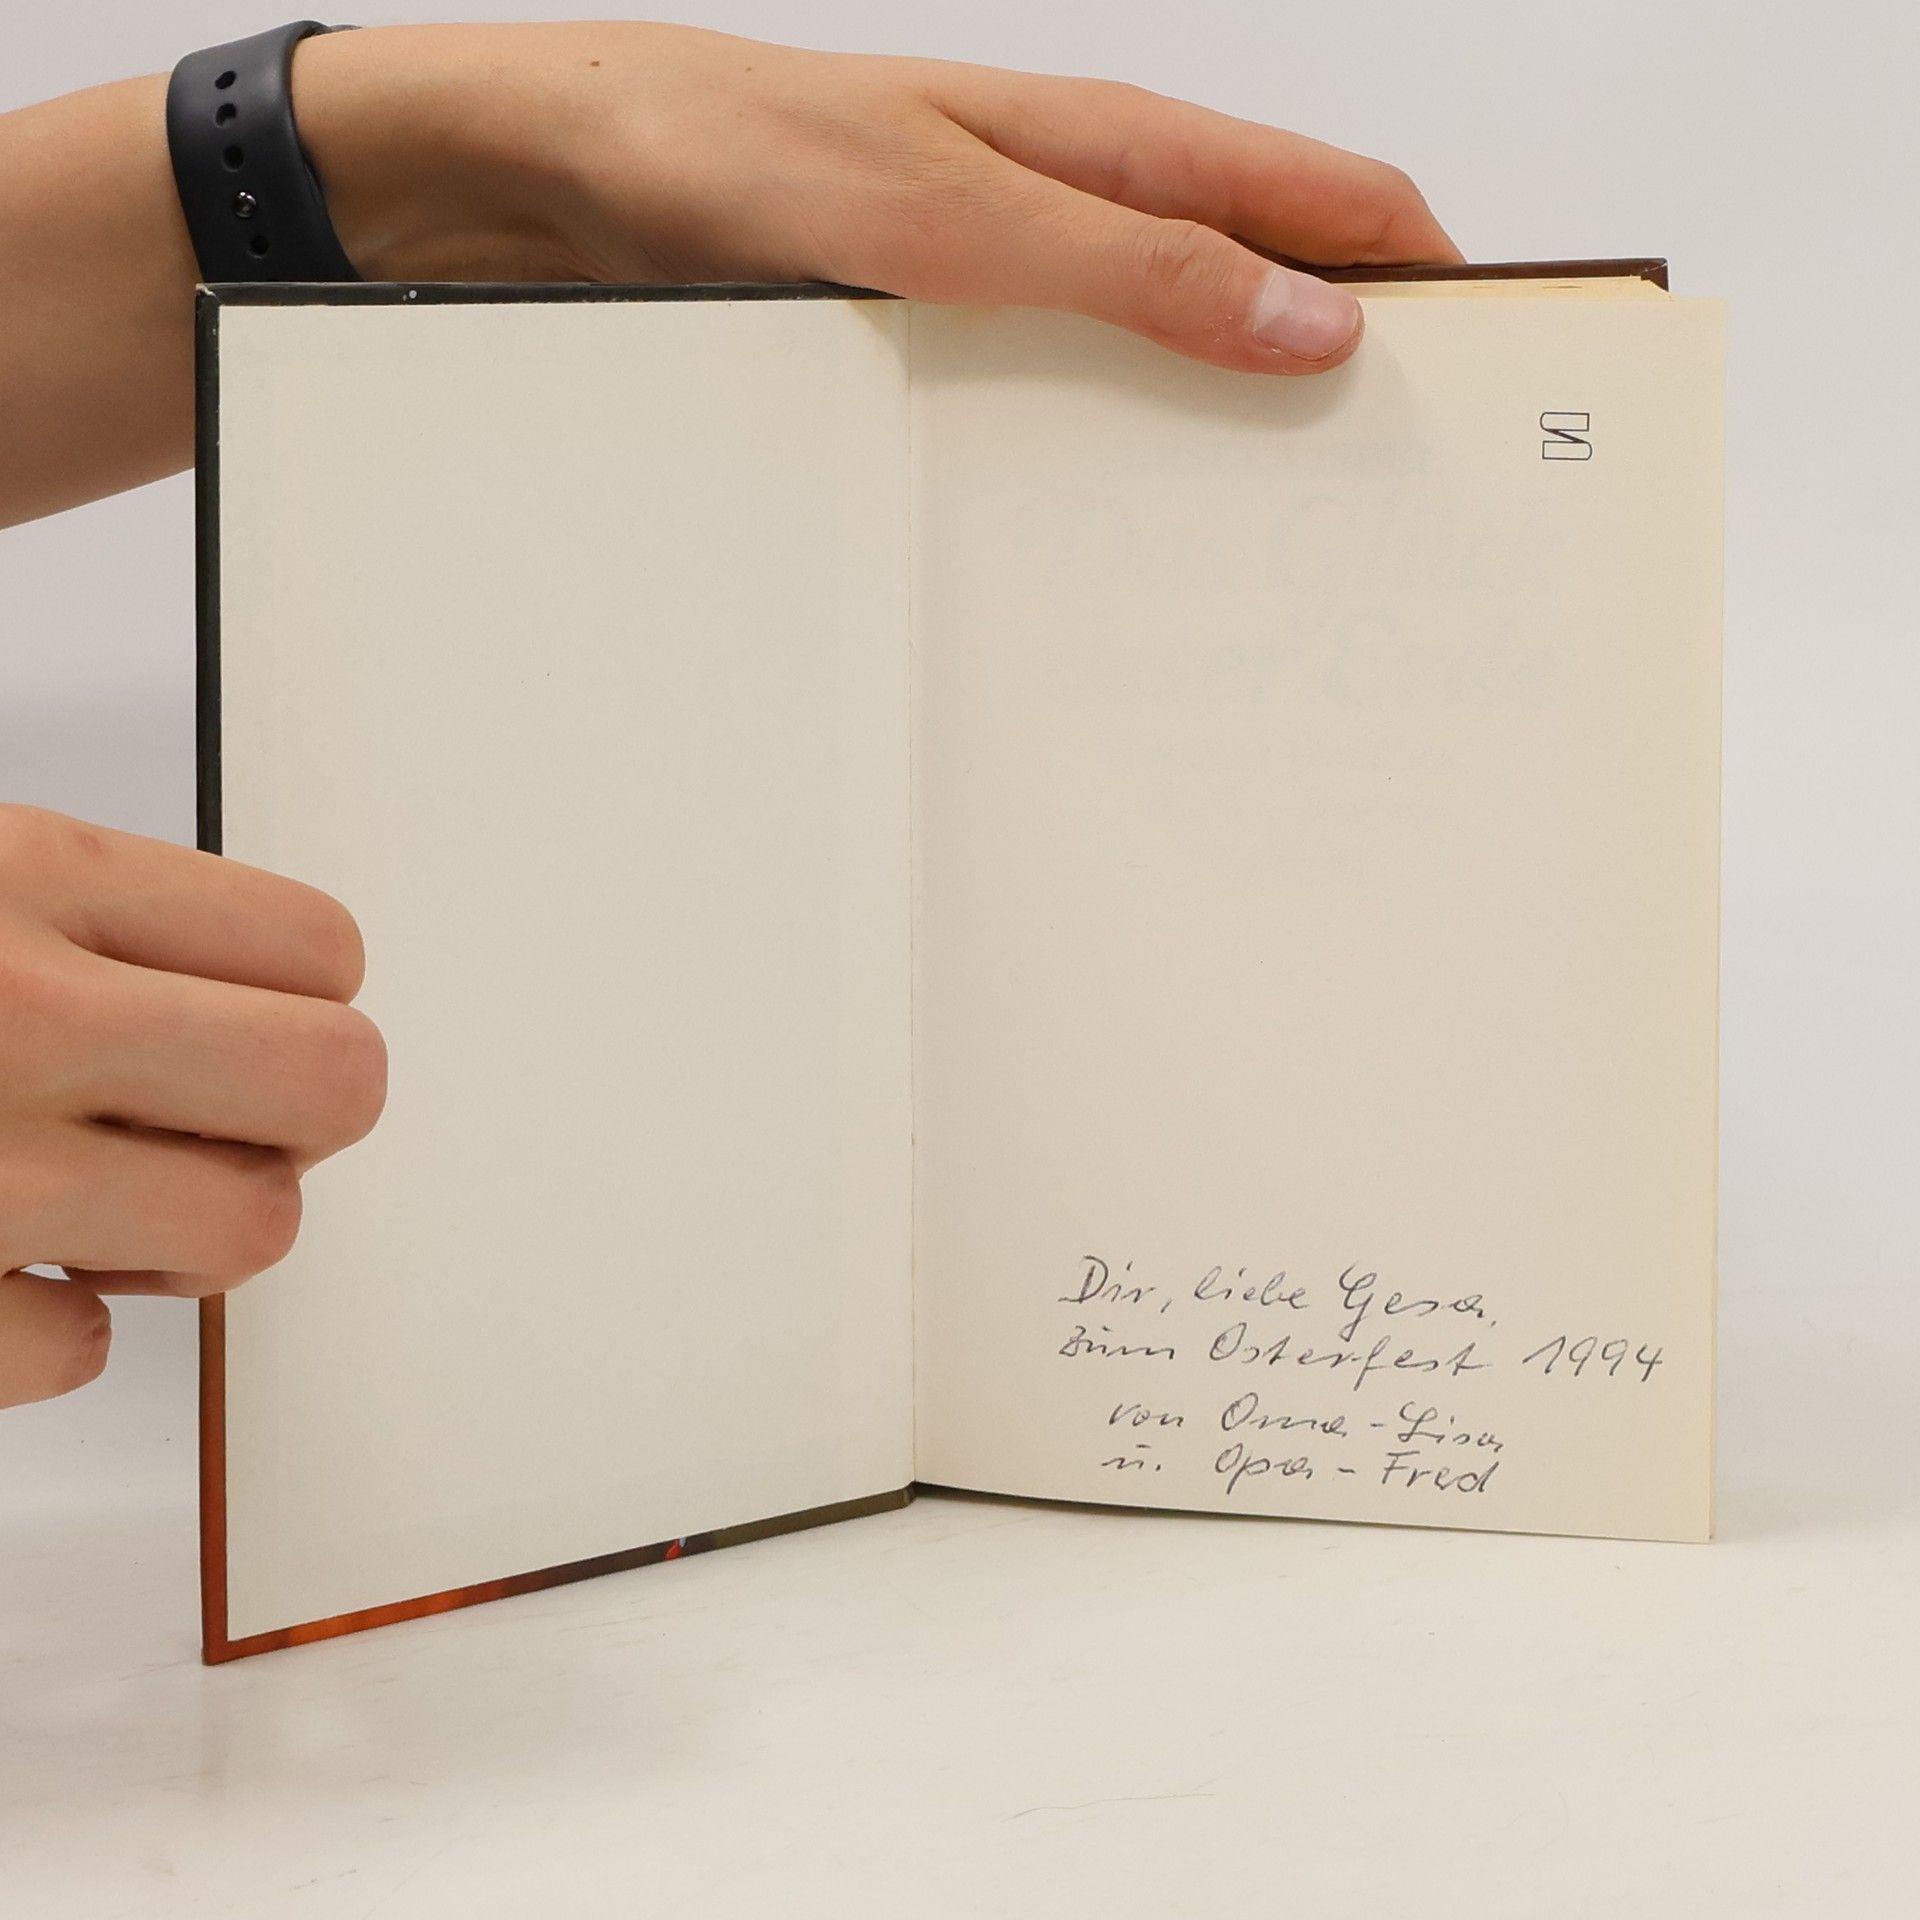 Dir, liebe Gesa,
zum Osterfest 1994
von Oma-Lisa
u. Opa-Fred